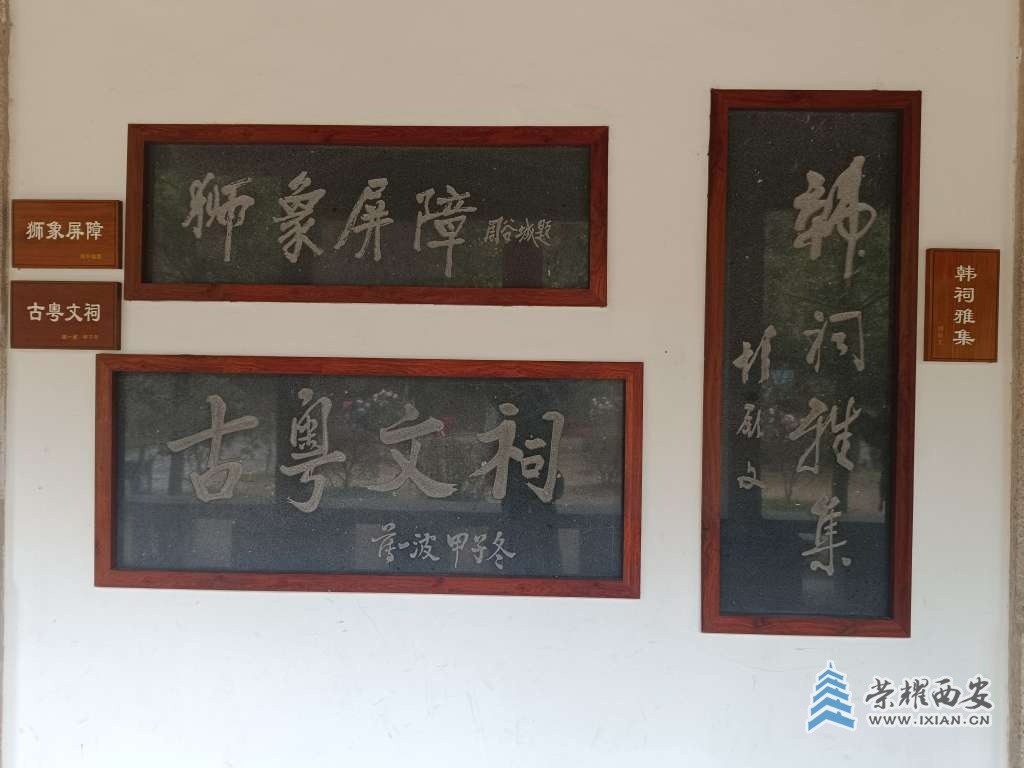 狮象屏障
周谷城题
狮象屏障
古粤文祠
古粤文祠
薄一波 甲子冬
韩祠雅集
韩祠雅集
荣耀西安
WWW.IXIAN.CN